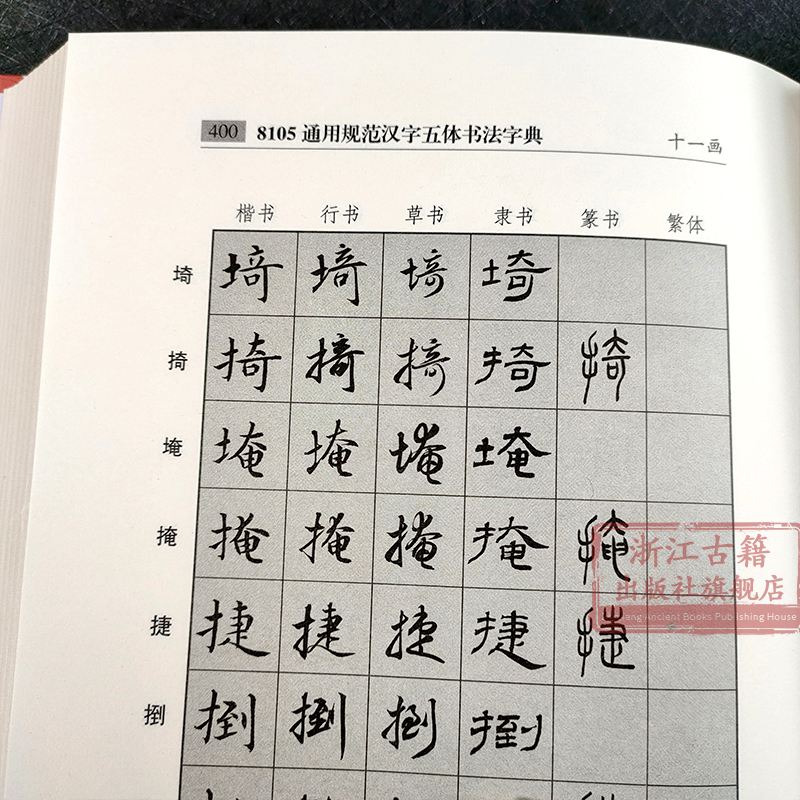 400 8105 通用规范汉字五体书法字典 十一画
楷书 行书 草书 隶书 篆书 繁体
埼 埼 埼 埼 埼
掎 掎 掎 掎 掎 掎
埯 埯 埯 埯 埯
掩 掩 掩 掩 掩 掩
捷 捷 捷 捷 捷 捷
捯 捯 捯 捯 捯
浙江古籍
出版社旗舰店
Ancient Books Publishing House